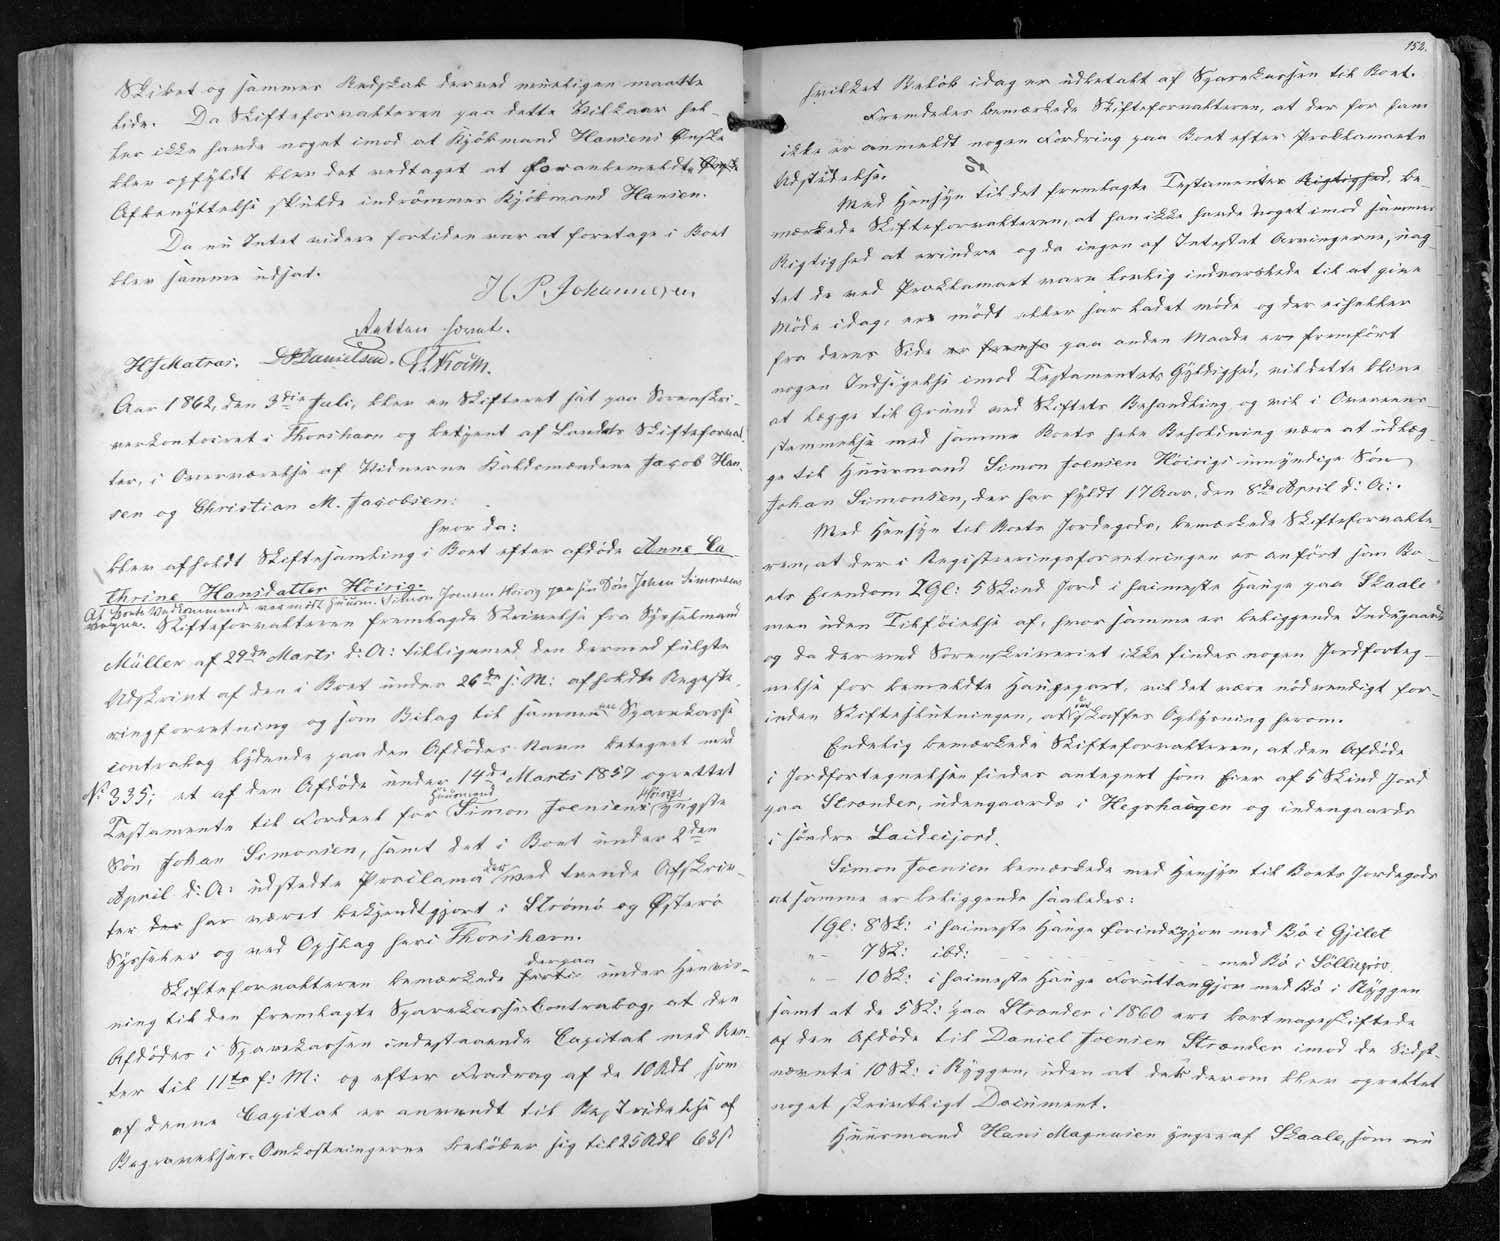 Skibet og sammes Redskab derved mueligen maatte
lide. Da Skifteforvalteren paa dette Vilkaar hel-
ler ikke havde noget imod at Kjøbmand Hansens Ønske
blev opfyldt blev det vedtaget at foranbemeldte
Afbenyttelse skulde indrömmes Kjöbmand Hansen.
Da nu Intet videre fortiden var at foretage i Boet
blev samme udsat.
H. P. Johannesen
Retten hævet.
HJMatras. Danielsen.
Aar 1862, den 3die Juli, blev en Skifteret sat paa Sorenskri-
verkontoiret i Thorshavn og betjent af Landets Skifteforval-
ter, i Overværelse af Vidnerne Kaldsmændene Jacob Han-
sen og Christian M. Jacobsen:
hvor da:
blev afholdt Skiftesamling i Boet efter afdöde Anne Ca-
thrine Hansdatter Höivig.
Af Boets Vedkommende var mödt Huusm. Simon Joensen Höivig paa sin Sön Johan Simonsens
Vegne. Skifteforvalteren fremlagde Skrivelse fra Sysselmand
Müller af 29de Marts d: A: tilligemed den dermed fulgte
Udskrivt af den i Boet under 26de s: M: afholdte Registe-
ringsforretning og som Bilag til samme en Sparekasse
contrabog lydende paa den Afdödes Navn betegnet med
No 335; et af den Afdöde under 14de Marts 1857 oprettet
Testamente til Fordeel for Huusmand Simon Joensens Höivigs yngste
Sön Johan Simonsen, samt det i Boet under 2den
April d: A: udstedte Proclama der ved trende Afskriv-
ter der har været bekjendtgjort i Strömö og Österö
Sysseler og ved Opslag her i Thorshavn.
Skifteforvalteren bemærkede derpaa under Henvis-
ning til den fremlagte Sparekasse-Contrabog, at den
Afdödes i Sparekassen indestaaende Capital med Ren-
ter til 11te f: M: og efter Fradrag af de 10 Rdl som
af denne Capital er anvendt til Bestridelse af
Begravelses-Omkostningerne belöber sig til 25 Rdl 63 ß
152.
hvilket Belöb idag er udbetalt af Sparekassen til Boet.
Fremdeles bemærkede Skifteforvalteren, at der for ham
ikke er anmeldt nogen Fordring paa Boet efter Proklamaets
Udstedelse.
Med Hensyn til det fremlagte Testamentes Rigtighed, be-
mærkede Skifteforvalteren, at han ikke havde Noget imod sammes
Rigtighed at erindre og da ingen af Intestat Arvingerne, uag-
tet de ved Proklamaet vare lovlig indvarslede til at give
Möde idag, ere mödt eller har ladet möde og der ei heller
fra deres Side er fremfö paa anden Maade ere fremfört
nogen Indsigelse imod Testamentets Gyldighed, vil dette blive
at lægge til Grund ved Skiftets Behandling og vil i Overeens-
stemmelse med samme Boets hele Beholdning være at udlæg-
ge til Huusmand Simon Joensen Höivigs umyndige Sön
Johan Simonsen, der har fyldt 17 Aar, den 8de April d: A:.
Med Hensyn til Boets Jordegods, bemærkede Skifteforvalte-
ren, at der i Registreringsforretningen er anfört som Bo-
ets Eiendom 2 Gl: 5 Skind Jord i haimeste Hauge paa Skaale
men uden Tilföielse af, hvor samme er beliggende Indengaards
og da der ved Sorenskriveriet ikke findes nogen Jordforteg-
nelse for bemeldte Haugepart, vil det være nödvendigt for-
inden Skifteslutningen, at skaffes Oplysning herom.
Endelig bemærkede Skifteforvalteren, at den Afdöde
i Jordfortegnelsen findes antegnet som Eier af 5 Skind Jord
paa Strænder, udengaards i Hegrhaugen og indengaards
i söndre Laideisjord.
Simon Joensen bemærkede med Hensyn til Boets Jordegods
at samme er beliggende saaledes:
1 Gl: 8 Sk: i haimeste Hauge forindengjov med Bö i Gjilet
"- 7 Sk: ibd: - - - - med Bö i
"- 10 Sk: i haimeste Hauge Foruttangjov med Bö i Ryggen
samt at de 5 Sk: paa Strænder i 1860 ere bortmageskiftede
af den Afdöde til Daniel Joensen Strænder imod de Sidst-
nævnte 10 Sk: i Ryggen, uden at dets derom blev oprettet
noget skrivtligt Document.
Huusmand Hans Magnusen yngre af Skaale, som nu